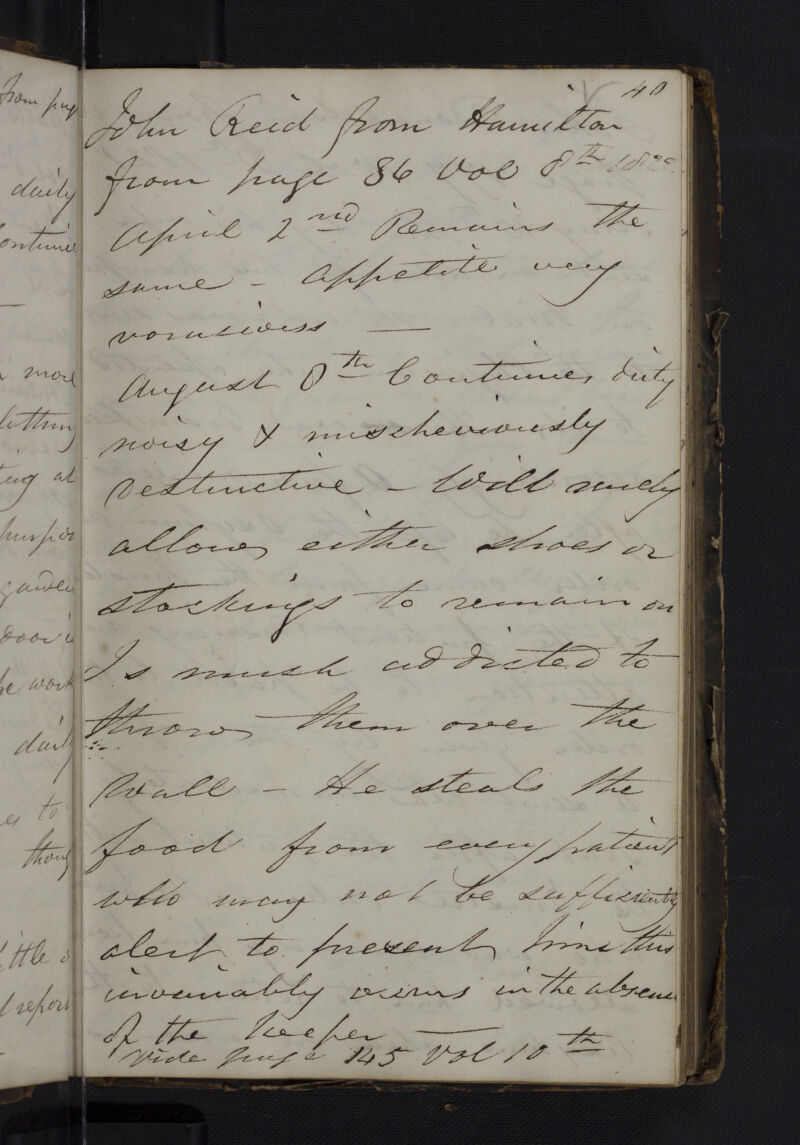 40
John Reid from Hamilton
from page 86 Vol 8th
April 2nd Remains the
same - Appetite very
voraciouss —
August 8th Continues dirty
noisy & mischeviously
destructive - Will rarely
allow either shoes or
stockings to remain on
Is much addicted to
throw them over the
Wall - He steals the
food from every patient
who may not be sufficiently
alert to prevent him this
invariably occurs in the absence
of the keeper —
vide page 145 Vol 10th
from pag
daily
ontinue
more
lothing
ing at
garden
door i
he work
daily
es to
thoug
ittle
report